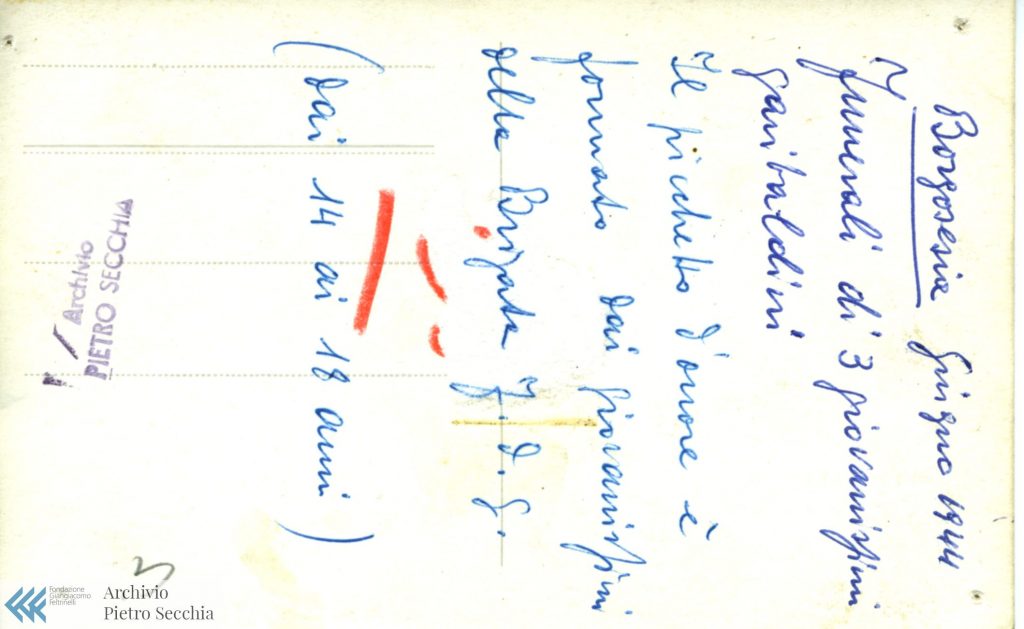 Borgosesia Giugno 1944
I funerali di 3 giovanissimi
garibaldini
Il picchetto d'onore è
formato dai giovanissimi
della Brigata F. d. G.
(dai 14 ai 18 anni)
Archivio
PIETRO SECCHIA
Fondazione
Giangiacomo
Feltrinelli
Archivio
Pietro Secchia